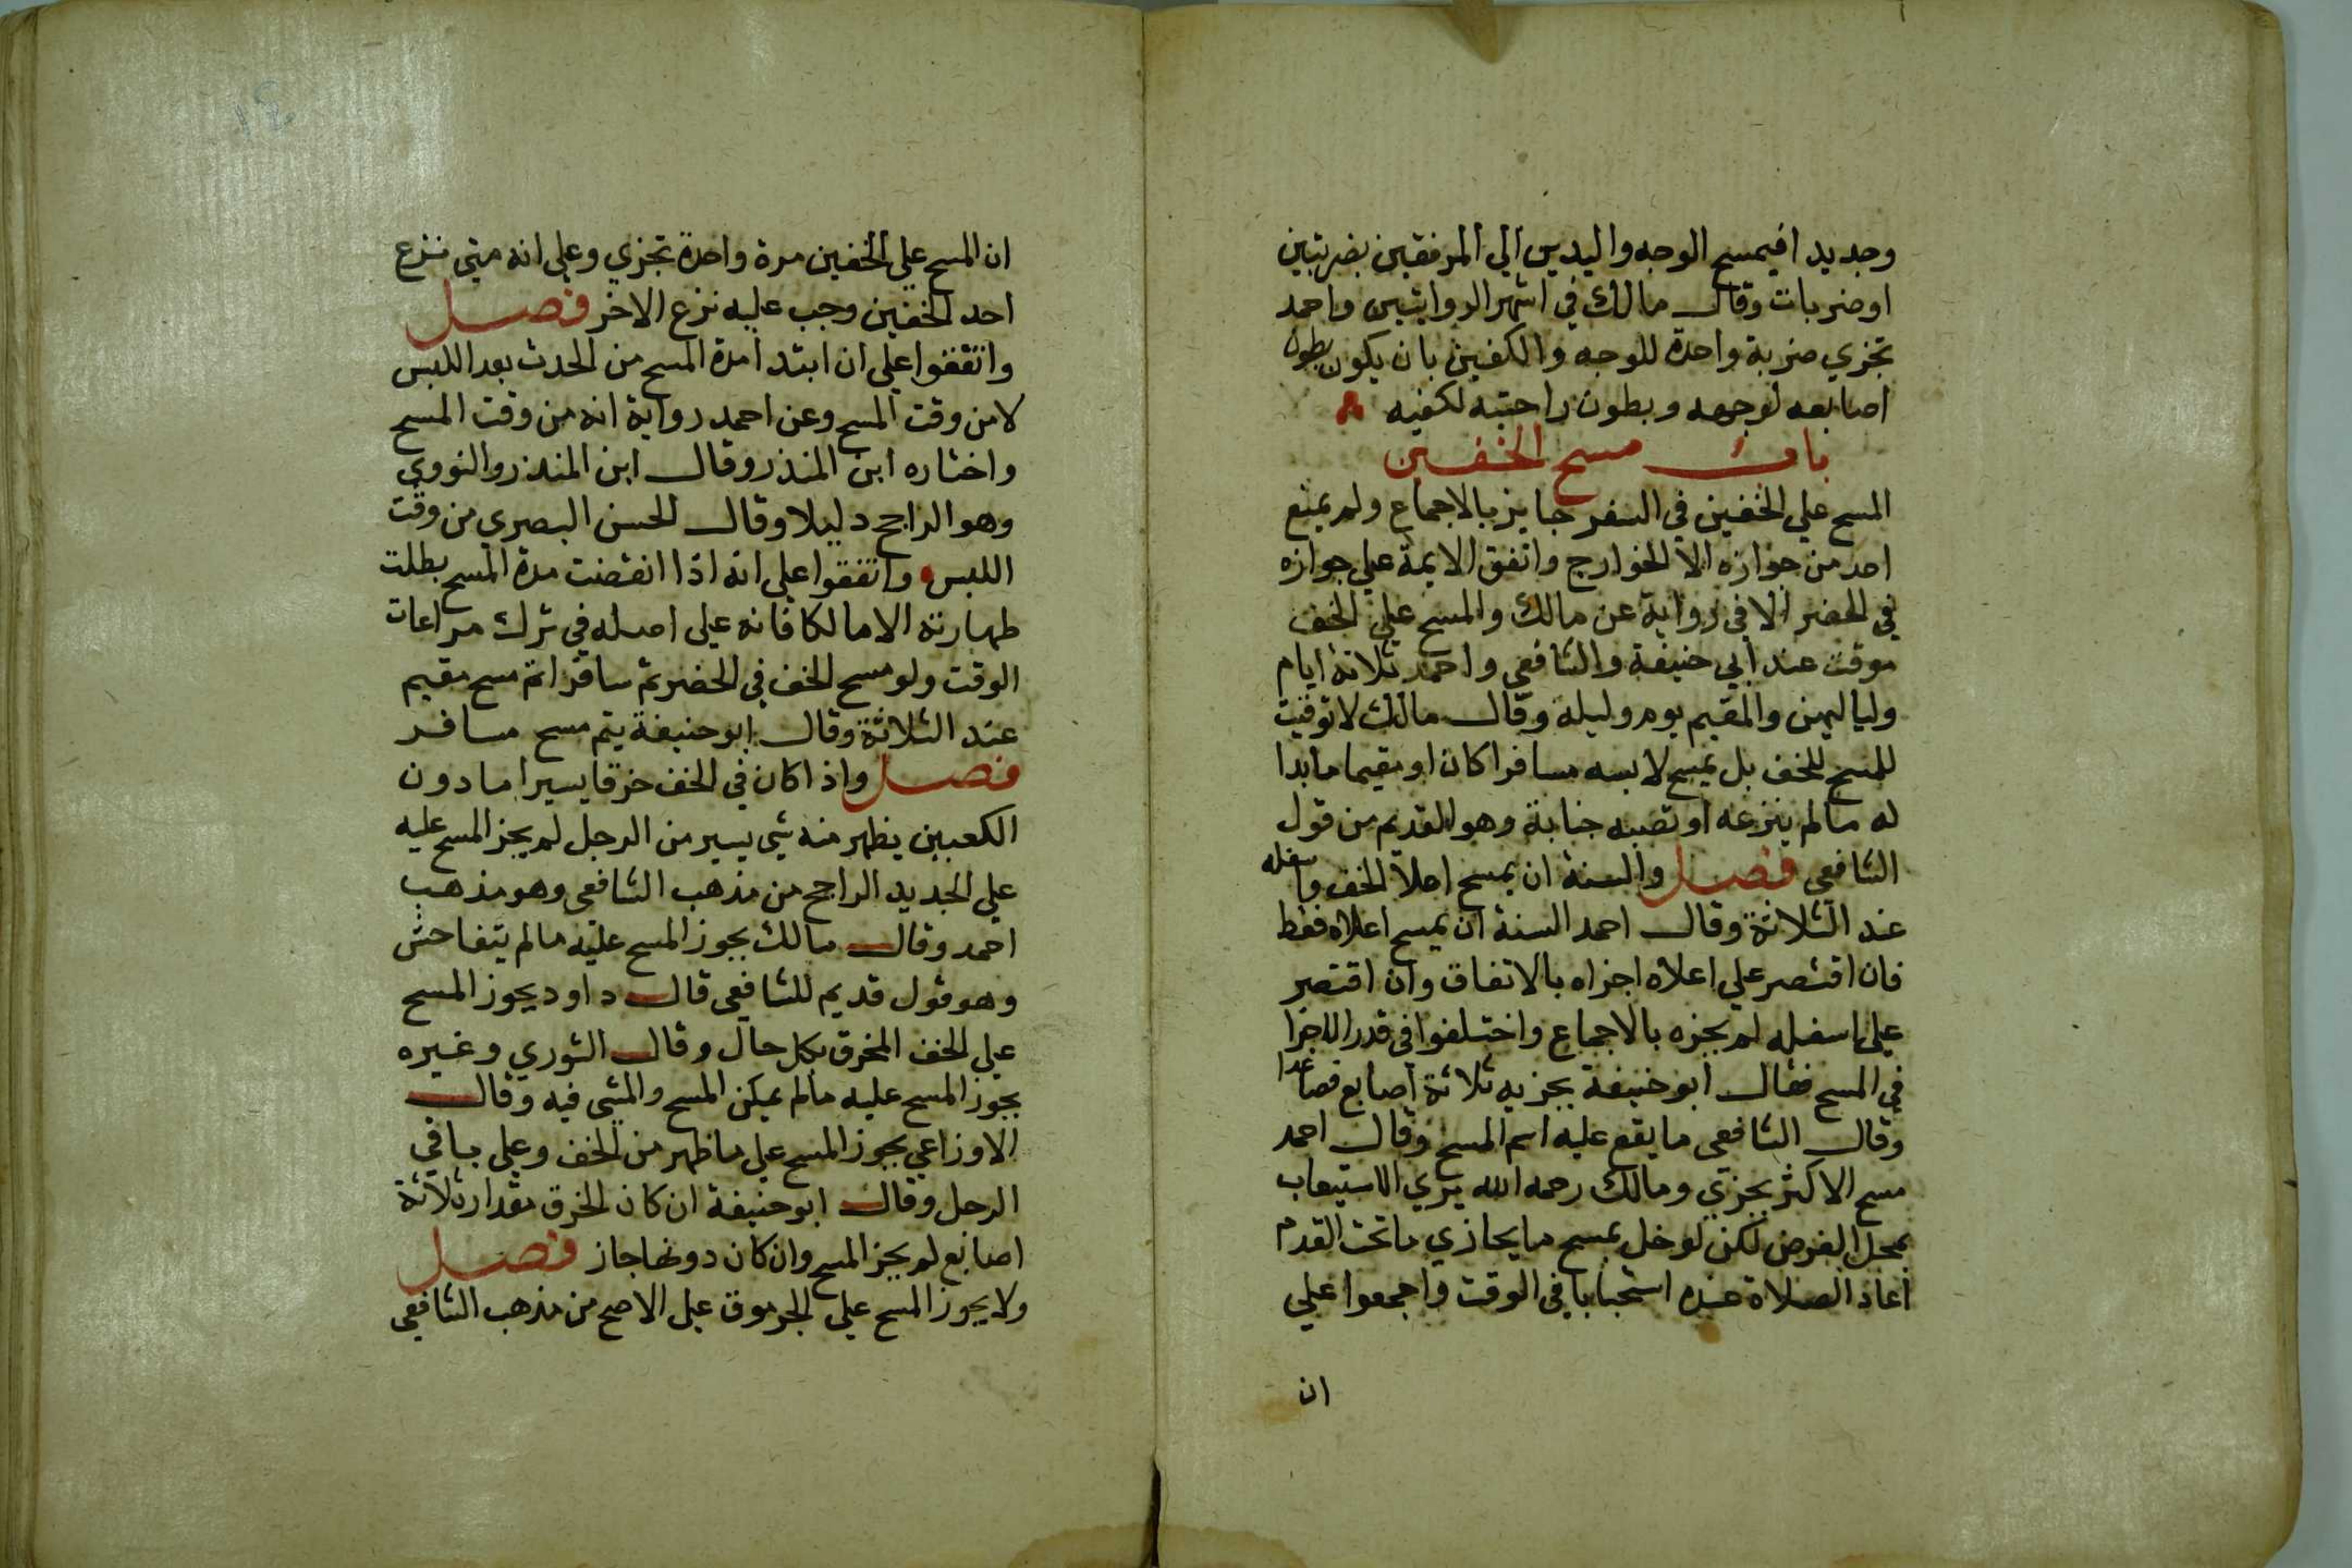 وجديد افيمسح الوجه واليدين الي المرفقين بضربتين
او ضربات وقال مالك في اشهر الروايتين واحمد
تجزي ضربة واحدة للوجه والكفين بان يكون بطون
اصابعه لوجهه وبطون راحتيه لكفيه
باب مسح الخفين
المسح علي الخفين في السفر جايز بالاجماع ولم يمنع
احد من جوازه الا الخوارج واتفق الايمة علي جوازه
في الحضر الا في رواية عن مالك والمسح علي الخف
موقت عند ابي حنيفة والشافعي واحمد ثلاثة ايام
ولياليهن والمقيم يوم وليلة وقال مالك لا توقيت
للمسح للخف بل يمسح لابسه مسافرا كان او مقيما ما بدا
له ما لم ينزعه او تصبه جنابة وهو القديم من قول
الشافعي فصل والسنة ان يمسح اعلا الخف واسفله
عند الثلاثة وقال احمد السنة ان يمسح اعلاه فقط
فان اقتصر علي اعلاه اجزاه بالاتفاق وان اقتصر
علي اسفله لم يجزه بالاجماع واختلفوا في قدر الاجزا
في المسح فقال ابو حنيفة يجزيه ثلاثة اصابع فصاعدا
وقال الشافعي ما يقع عليه اسم المسح وقال احمد
مسح الاكثر يجزي ومالك رحمه الله يري الاستيعاب
بمحل الفرض لكن لو خل بمسح ما يحاذي ما تحت القدم
اعاد الصلاة عنده استحبابا في الوقت واجمعوا علي
ان
ان المسح علي الخفين مرة واحدة تجزي وعلي انه متي نزع
احد الخفين وجب عليه نزع الاخر فصل
واتفقوا علي ان ابتدا مدة المسح من الحدث بعد اللبس
لا من وقت المسح وعن احمد رواية انه من وقت المسح
واختاره ابن المنذر وقال ابن المنذر والنووي
وهو الراجح دليلا وقال الحسن البصري من وقت
اللبس واتفقوا علي انه اذا انقضت مدة المسح بطلت
طهارته الا مالكا فانه علي اصله في ترك مراعات
الوقت ولو مسح الخف في الحضر ثم سافر اتم مسح مقيم
عند الثلاثة وقال ابو حنيفة يتم مسح مسافر
فصل واذا كان في الخف خرقا يسيرا ما دون
الكعبين يظهر منه شي يسير من الرجل لم يجز المسح عليه
علي الجديد الراجح من مذهب الشافعي وهو مذهب
احمد وقال مالك يجوز المسح عليه ما لم يتفاحش
وهو قول قديم للشافعي قال داود يجوز المسح
علي الخف المخرق بكل حال وقال الثوري وغيره
يجوز المسح عليه ما لم يمكن المسح والمشي فيه وقال
الاوزاعي يجوز المسح علي ما ظهر من الخف وعلي باقي
الرجل وقال ابو حنيفة ان كان الخرق مقدار ثلاثة
اصابع لم يجز المسح وان كان دونها جاز فصل
ولا يجوز المسح علي الجرموق علي الاصح من مذهب الشافعي